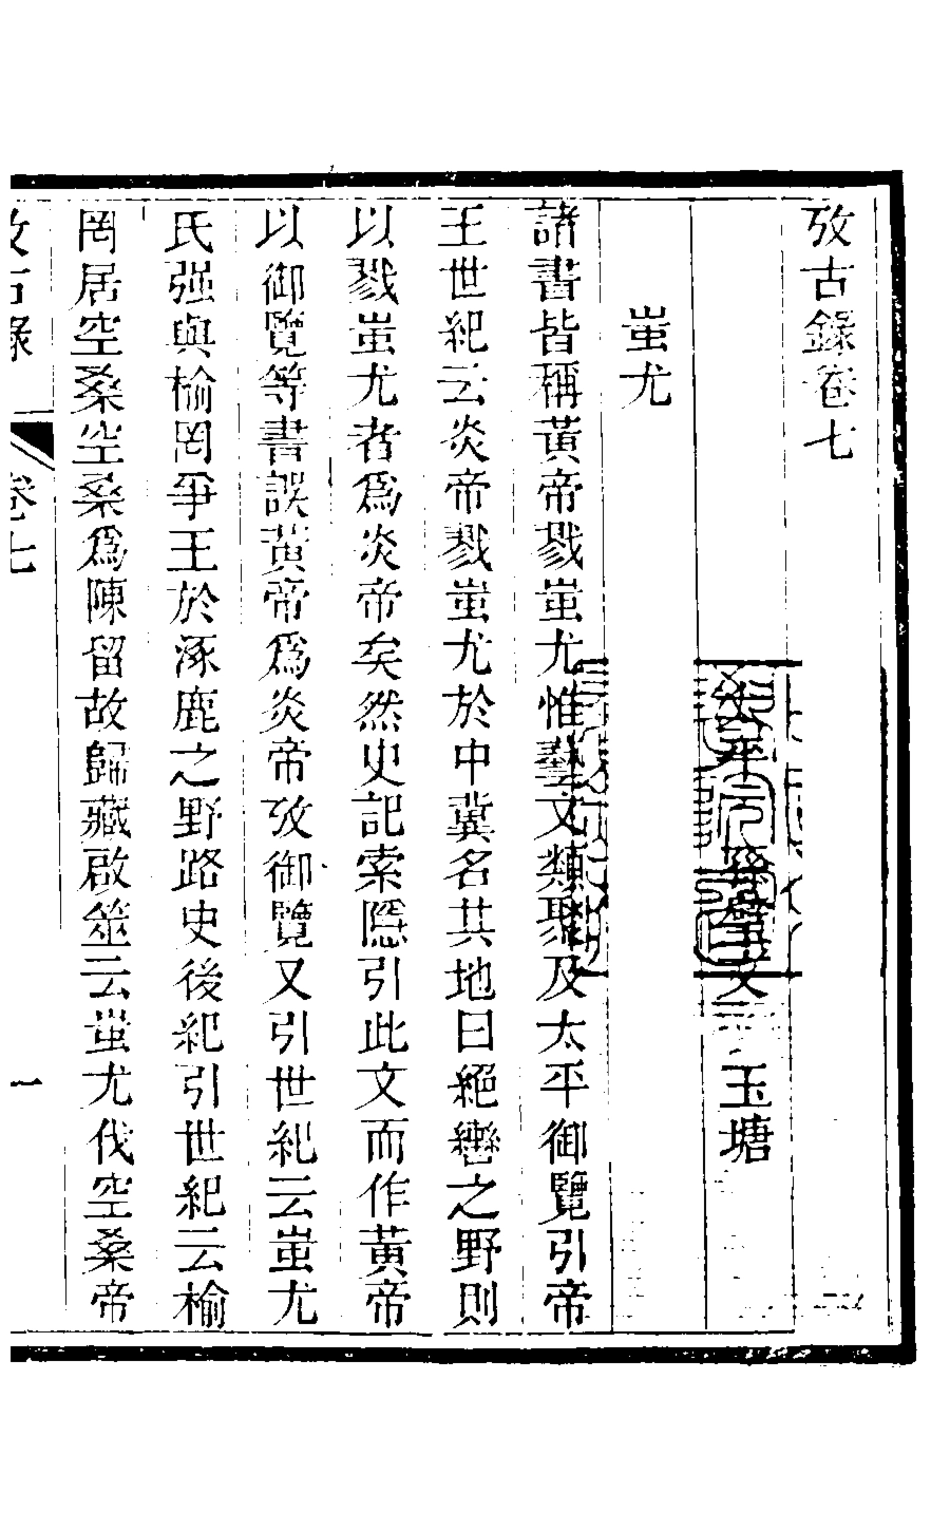 攷古錄卷七
玉塘
蚩尤
諸書皆稱黃帝戮蚩尤惟藝文類聚及太平御覽引帝
王世紀云炎帝戮蚩尤於中冀名其地曰絕轡之野則
以戮蚩尤者爲炎帝矣然史記索隱引此文而作黃帝
以御覽等書誤黃帝爲炎帝攷御覽又引世紀云蚩尤
氏强與榆罔爭王於涿鹿之野路史後紀引世紀云榆
罔居空桑空桑爲陳留故歸藏啟筮云蚩尤伐空桑帝
攷古錄
卷七
一